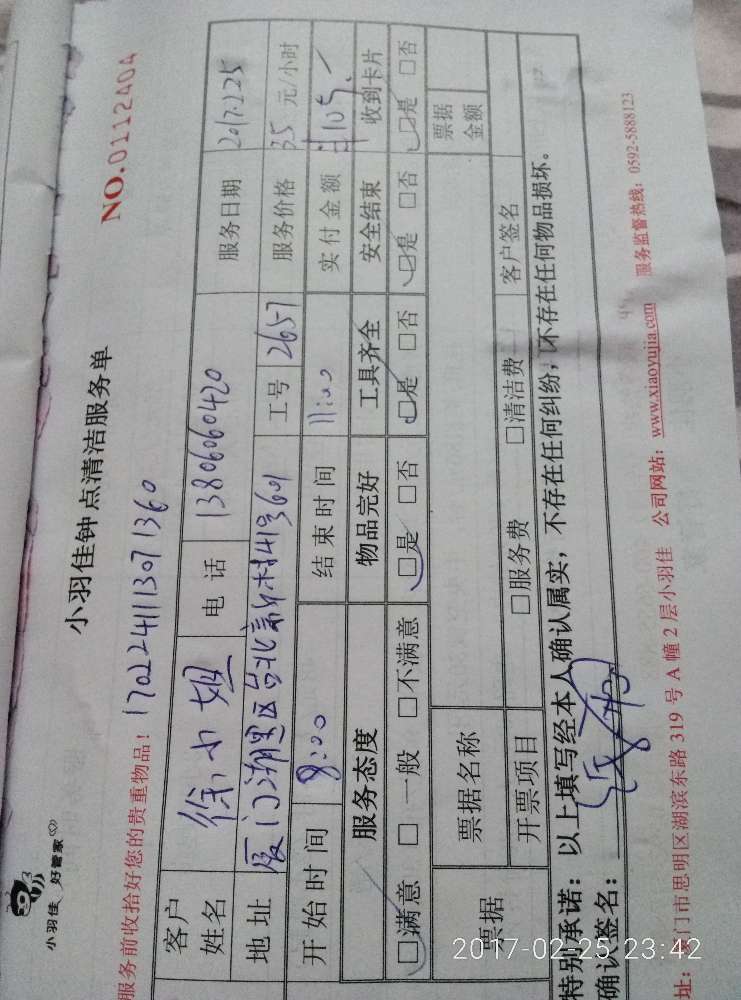 小羽佳 好管家
小羽佳钟点清洁服务单
NO.0112404
服务前收拾好您的贵重物品! 1702241113071360
客户姓名 徐小姐 电话 13806060420 服务日期 2017.2.25
地址 厦门湖里区台北新村41号3601 工号 2657 服务价格 35 元/小时
开始时间 8:00 结束时间 11:00 实付金额 ¥105.-
服务态度 物品完好 工具齐全 安全结束 收到卡片
□满意 □一般 □不满意 □是 □否 □是 □否 □是 □否 □是 □否
票据 票据名称 票据金额
开票项目 □服务费 □清洁费 客户签名
特别承诺: 以上填写经本人确认属实, 不存在任何纠纷, 不存在任何物品损坏。
确认签名:
址: 厦门市思明区湖滨东路 319 号 A 幢 2 层小羽佳 公司网站: www.xiaoyujia.com 服务监督热线: 0592-5888123
2017-02-25 23:42